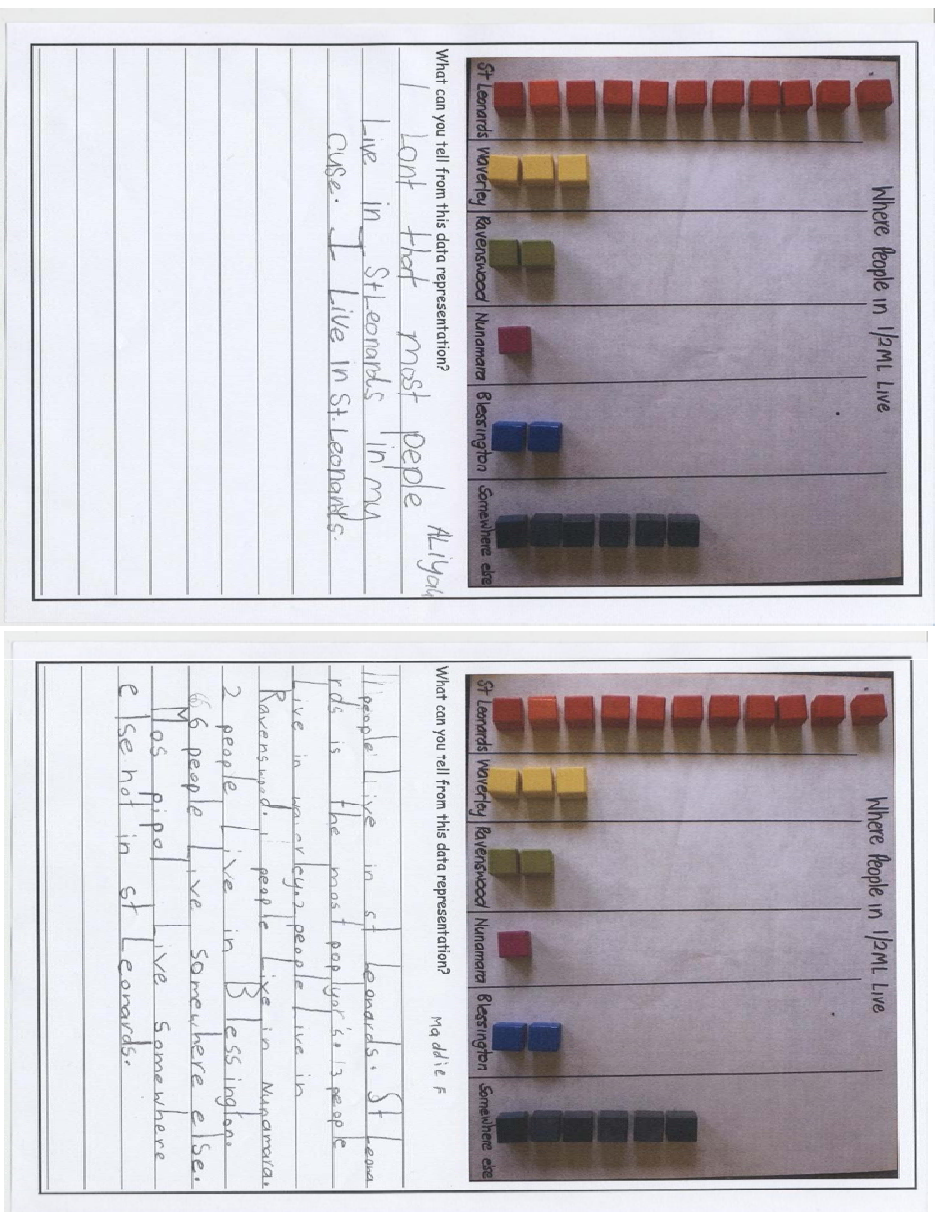 Where People in 1/2ML Live
St Leonards Waverley Ravenswood Nunamara Blessington Somewhere else
What can you tell from this data representation?
ALiyah
I Lont that most peple
Live in St Leonards in my
cluse. I Live in St. Leonards.
Where People in 1/2ML Live
St Leonards Waverley Ravenswood Nunamara Blessington Somewhere else
What can you tell from this data representation?
Maddie F
11 people Live in st Leonards. St Leona
rds is the most poplyor's. 13 people
Live in waverley. 2 people Live in
Ravenswood. 1 people Live in Nunamara.
2 people Live in Blessington.
6 people Live somewhere else.
Mos pipol Live somewhere
else not in st Leonards.